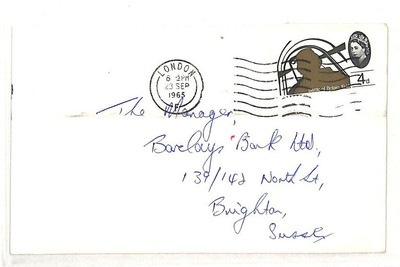 LONDON
6 2PM
23 SEP
1965
4d
The Manager,
Barclays Bank Ltd,
139/142 North St,
Brighton,
Sussex